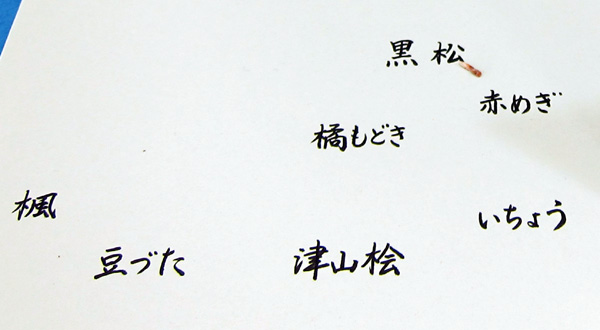 黒松
赤めぎ
橘もどき
楓
いちょう
豆づた
津山桧